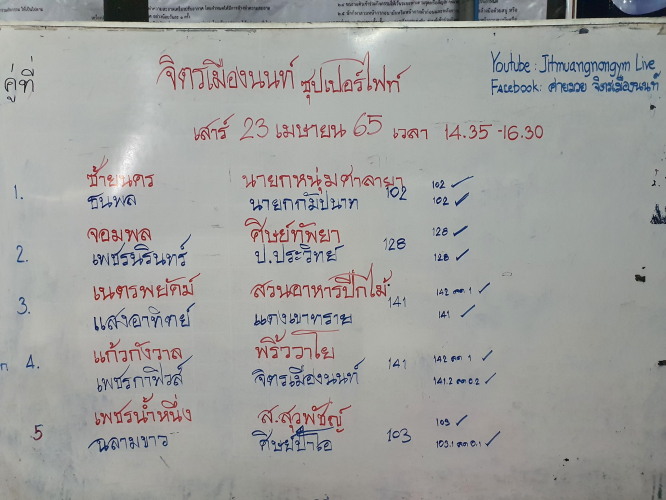 คู่ที่
จิตรเมืองนนท์ ซุปเปอร์ไฟท์
Youtube : Jitmuangnongym Live
Facebook : ค่ายมวย จิตรเมืองนนท์
เสาร์ 23 เมษายน 65 เวลา 14.35 -16.30
1. ซ้ายนคร นายกหนุ่มศาลายา 102 102 ✓
ธนพล นายกกัมปนาท 102 ✓
2. จอมพล ศิษย์ทัพยา 128 128 ✓
เพชรนรินทร์ ป.ประวิทย์ 128 ✓
3. เนตรพยัคฆ์ สวนอาหารปีกไม้ 141 142 ลด 1 ✓
แสงอาทิตย์ แดงเขาทราย 141 ✓
4. แก้วกังวาล พริ้ววาโย 141 142 ลด 1 ✓
เพชรกาฟิวส์ จิตรเมืองนนท์ 141.2 ลด 0.2 ✓
5 เพชรน้ำหนึ่ง ส.สุวพัชญ์ 103 103 ✓
ฉลามขาว ศิษย์ป๋าโอ 103.1 ลด 0.1 ✓